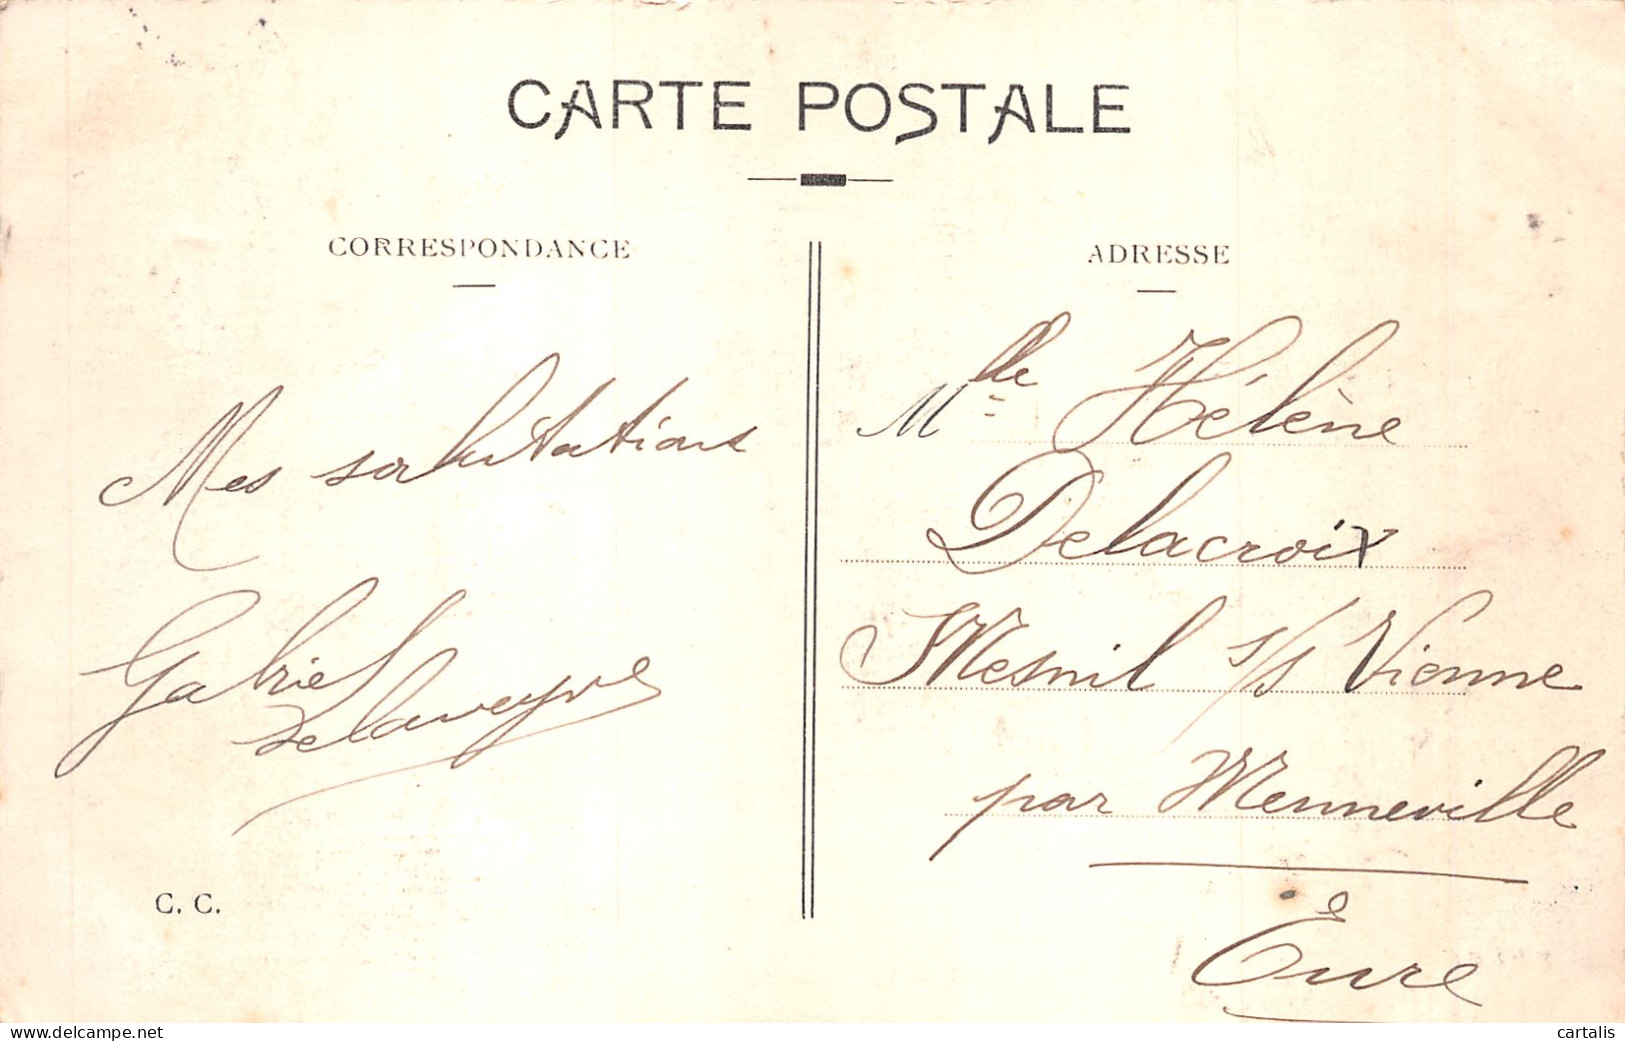 CARTE POSTALE
CORRESPONDANCE
ADRESSE
Mes salutations
Gabriel
Delaveyne
C. C.
Mlle Hélène
Delacroix
Mesnil s/s Vienne
par Menneville
Eure
delcampe.net
cartalis